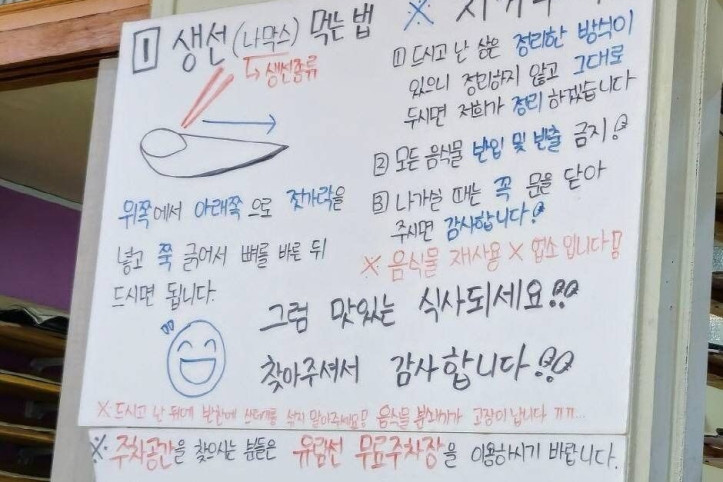 1 생선(나막스) 먹는 법
↳ 생선종류
위쪽에서 아래쪽으로 젓가락을
넣고 쭉 긁어서 뼈를 바른 뒤
드시면 됩니다.
※
1 드시고 난 상은 정리한 방식이
있으니 정리하지 않고 그대로
두시면 저희가 정리하겠습니다
2 모든 음식물 반입 및 반출 금지!
3 나가실 때는 꼭 문을 닫아
주시면 감사합니다!
※ 음식물 재사용 × 업소입니다!
그럼 맛있는 식사되세요!!
찾아주셔서 감사합니다!!
※ 드시고 난 뒤에 반찬에 쓰레기를 섞지 말아주세요! 음식물 분쇄기가 고장이 납니다 ㅠㅠ...
※ 주차공간을 찾으시는 분들은 유람선 무료주차장을 이용하시기 바랍니다.